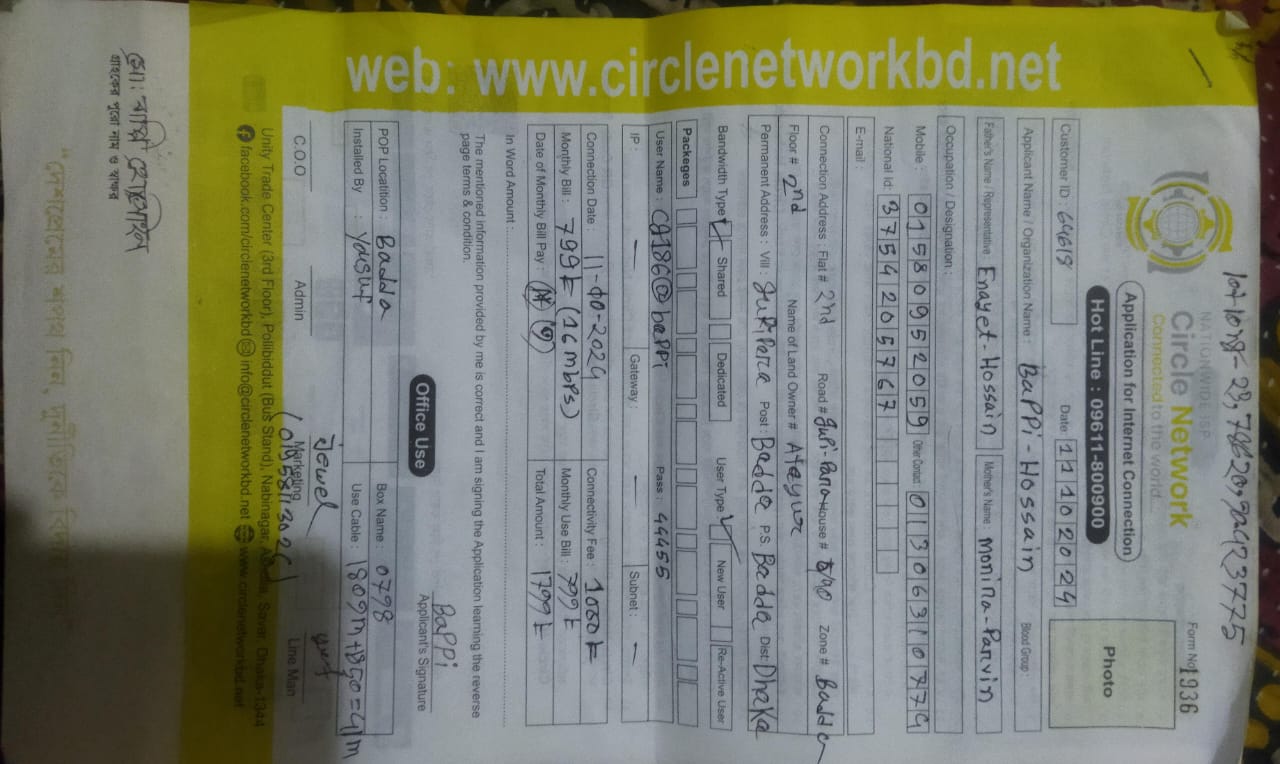 NATIONWIDE ISP
Circle Network
Connected to the world...
Form No: 1936
Application for Internet Connection
Hot Line : 09611-800900
Photo
Customer ID : 64619 Date: 11102024
Applicant Name / Organization Name : BaPPi-Hossain Blood Group :
Father's Name / Representative : Enayet-Hossain Mother's Name : monira-Parvin
Occupation / Designation :
Mobile : 01580952059 Other Contact : 01306310774
National Id: 3754205767
E-mail :
Connection Address : Flat # 2nd Road # guri-Para House # Zone # Badda
Floor # 2nd Name of Land Owner #
Permanent Address : Vill : Post : Badda P.S. Badda Dist: Dhaka
Bandwidth Type Shared Dedicated User Type New User Re-Active User
Packeges
User Name : @baPPi Pass : 44455
IP : — Gateway : — Subnet : —
Connection Date : 11-10-2024 Connectivity Fee : 1000৳
Monthly Bill : 799৳ (16mbPs) Monthly Use Bill : 799৳
Date of Monthly Bill Pay : Total Amount : 1799৳
In Word Amount :
The mentioned information provided by me is correct and I am signing the Application learning the reverse
page terms & condition.
BaPPi
Applicant's Signature
Office Use
POP Locatition : Badda Box Name : 0798
Installed By : Yousuf Use Cable : 1809m+1850=41m
Jewel
C.O.O Admin Marketing Line Man
Unity Trade Center (3rd Floor), Pollibiddut (Bus Stand), Nabinagar, Savar, Dhaka-1344
facebook.com/circlenetworkbd info@circlenetworkbd.net www.circlenetworkbd.net
web: www.circlenetworkbd.net
মো: বাপ্পি হোসাইন
গ্রাহকের পুরো নাম ও স্বাক্ষর